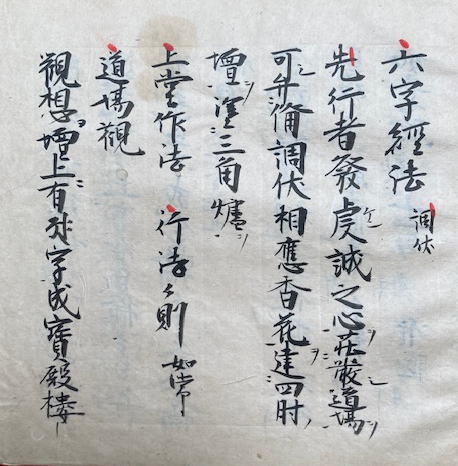 六字經法 調伏
先行者發虔誠之心莊嚴道場
可弁備調伏相應香花建四肘
壇塗三角爐
上堂作法 行法々則 如常
道場觀
觀想壇上有字成寶殿樓